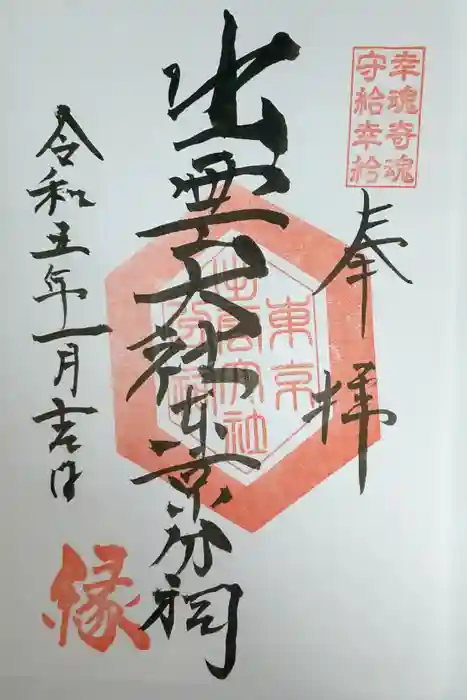 幸魂奇魂
守給幸給
奉拝
出雲大社東京分祠
東京
出雲大社
分祠
令和五年一月吉日
縁